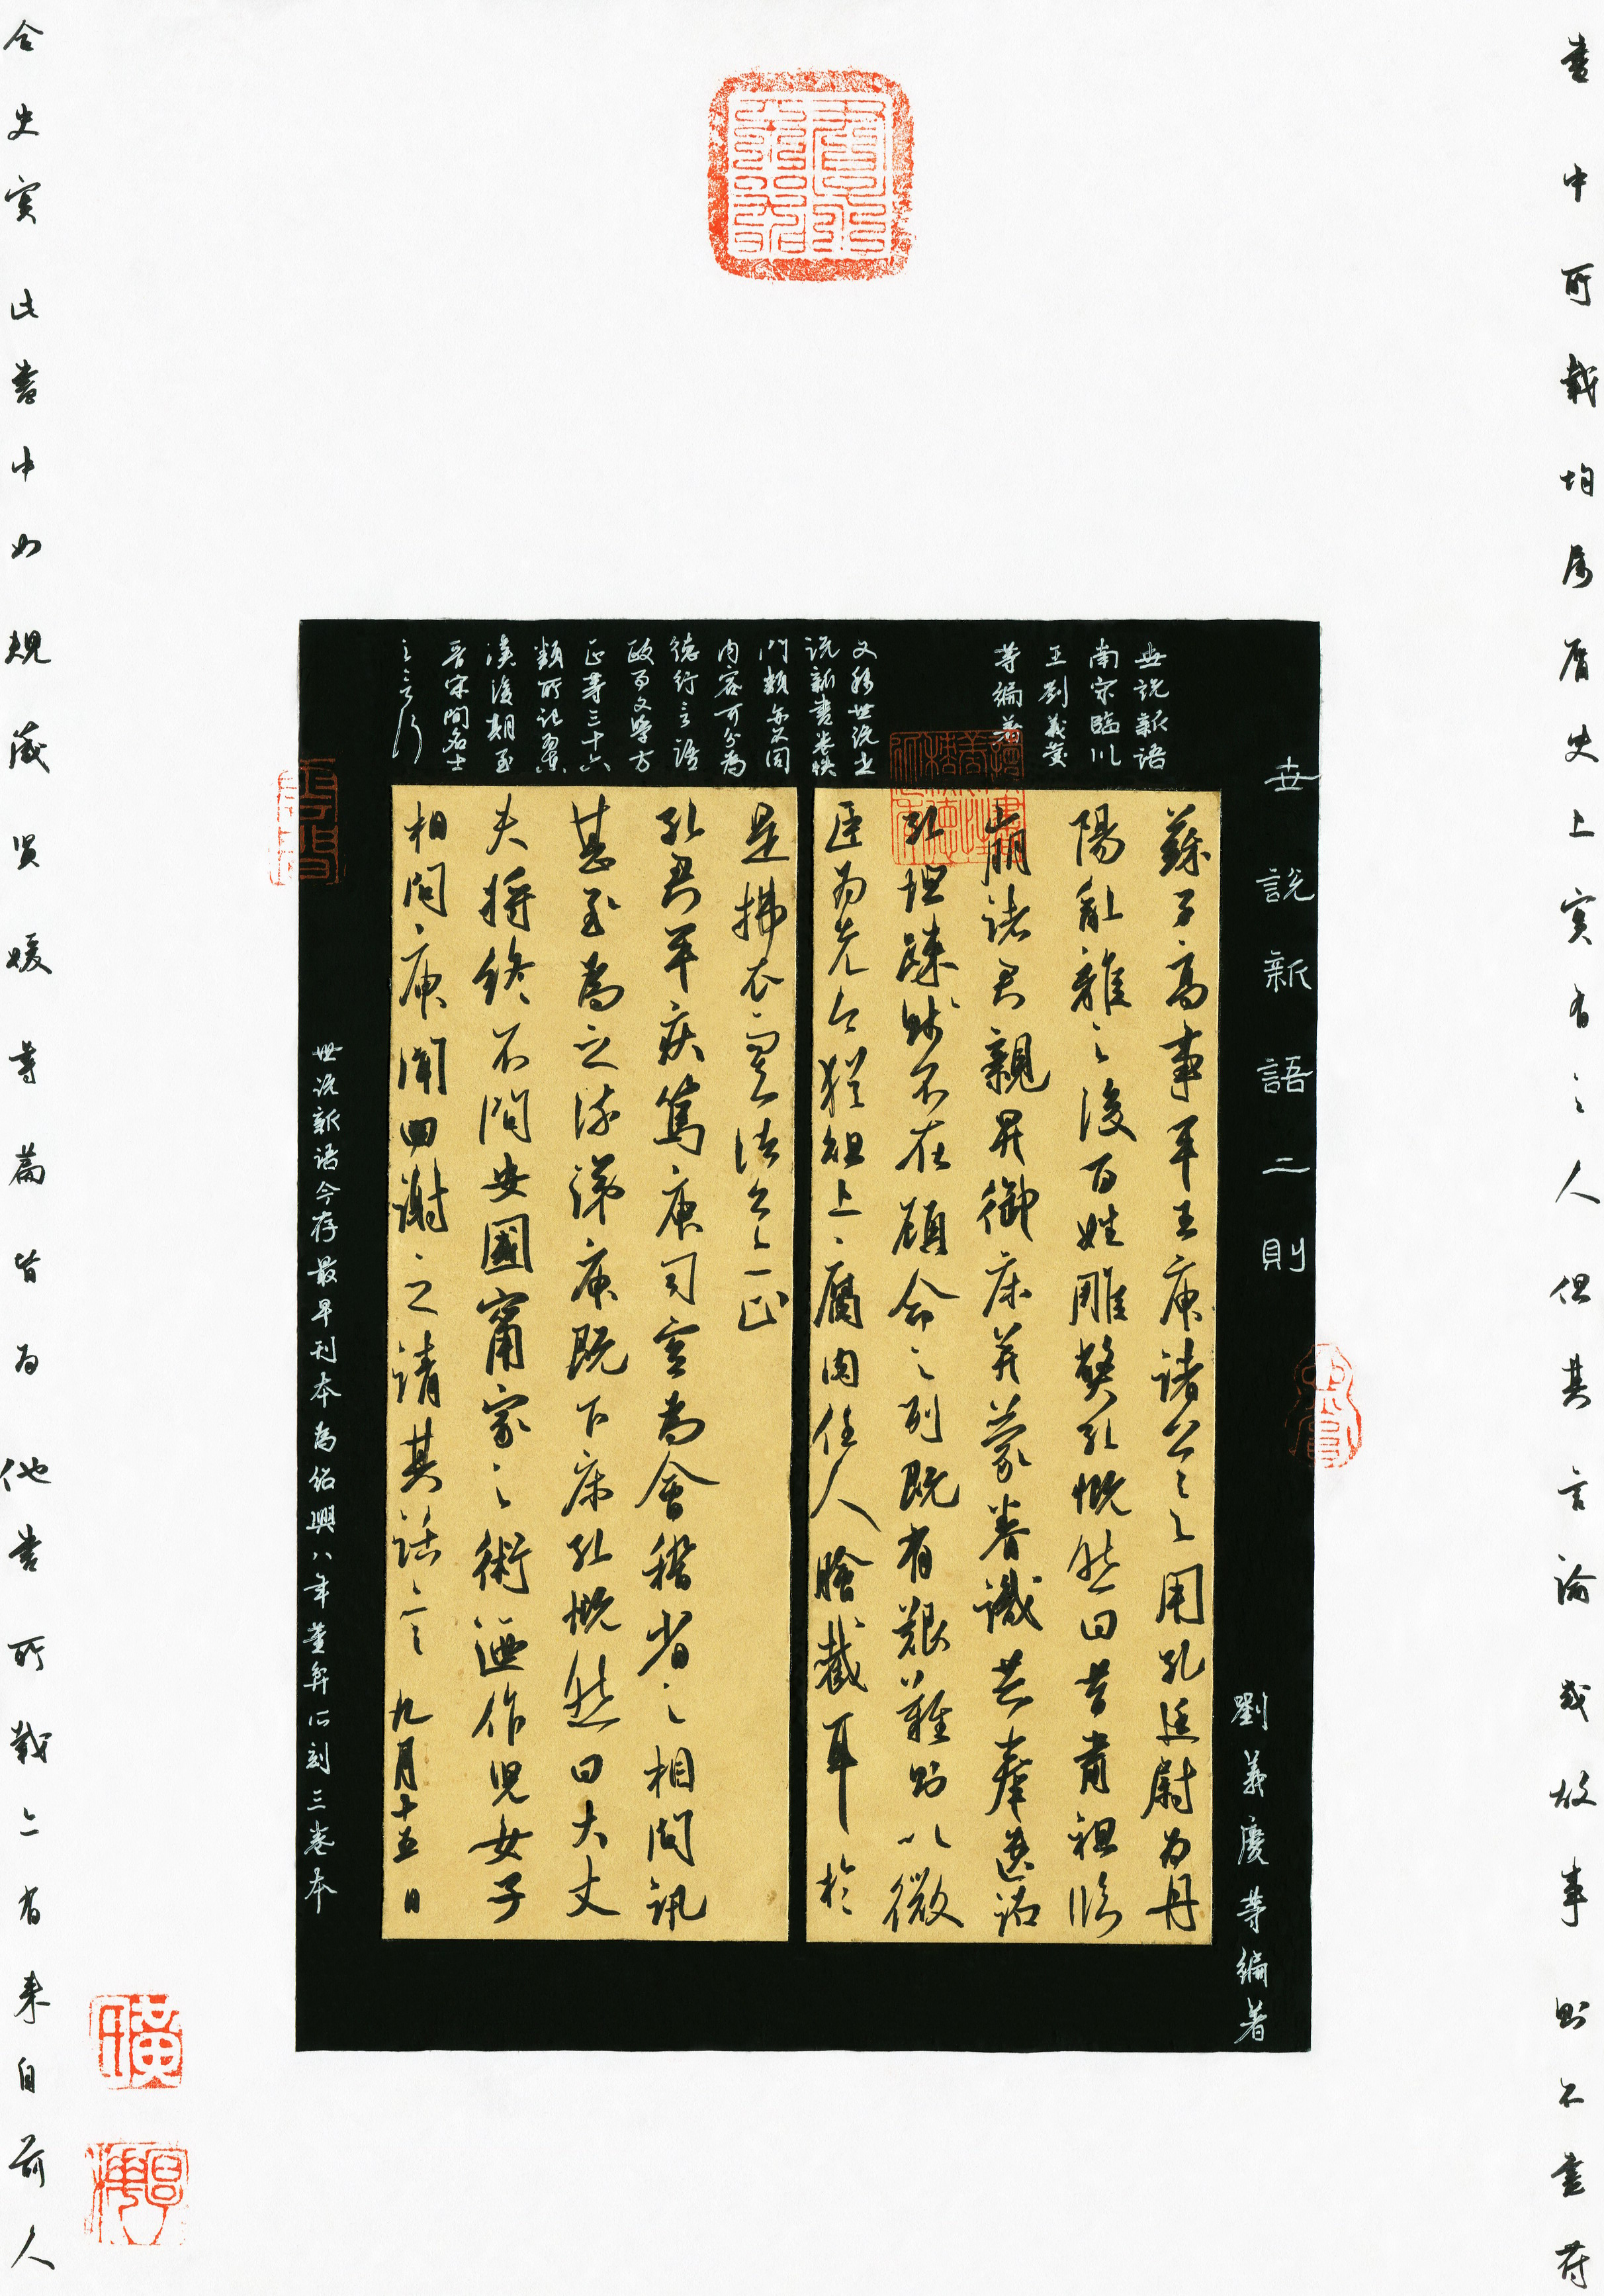 書中所載均屬歷史上實有之人但其言論或故事則不盡符
世説新語二則
劉義慶等編著
世説新語
南宋臨川
王劉義慶
等編著
又稱世说
说新書卷帙
門類亦不同
内容可分為
德行言語
政事文學方
正等三十六
類所记
漢後期至
晋宋間名士
之言行
蘇子高事平王庾諸公之用孔廷尉为丹
陽亂離之後百姓雕弊孔慨然曰昔肅祖临
崩諸君親昇御床并蒙眷識共奉遺诏
孔坦疎賤不在顧命之列既有艱難則以微
臣为先今犹俎上腐肉任人膾截耳於
是拂衣而去諸公亦止
孔君平疾篤庾司空為會稽省之相問訊
甚至為之流涕庾既下床孔慨然曰大丈
夫将终不問安國甯家之術迺作児女子
相問庾聞回謝之請其话言 九月十五日
世说新语今存最早刊本為绍興八年董弅所刻三卷本
合史實此書中如規箴贤媛等篇皆为他書所載亦有来自前人